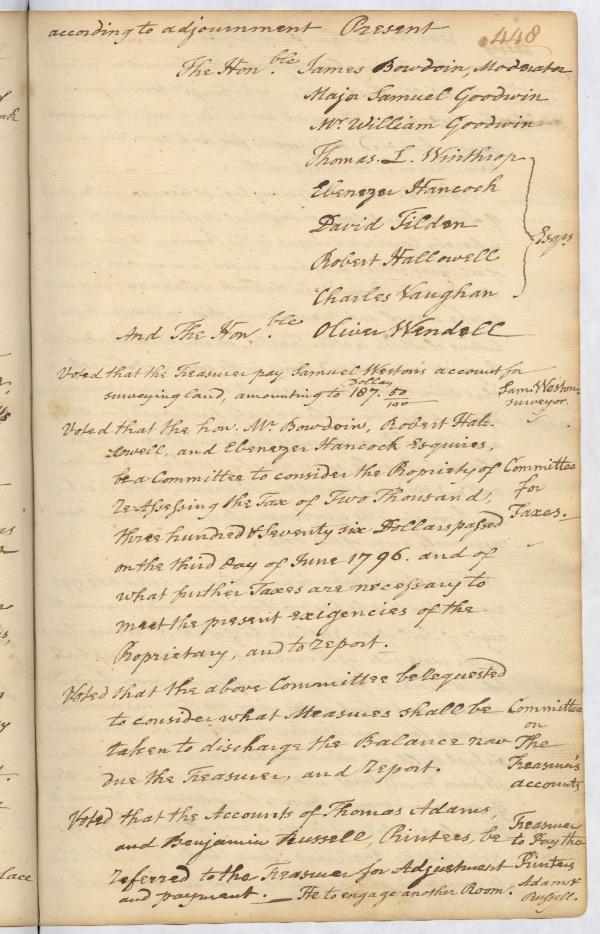 according to adjournment Present 448
The Hon.ble James Bowdoin, Moderator
Major Samuel Goodwin
Mr. William Goodwin
Thomas. L. Winthrop
Ebenezer Hancock
David Tilden
Robert Hallowell
Charles Vaughan
Esqrs
And The Hon.ble Oliver Wendell
Voted that the Treasurer pay Samuel Weston's account for
surveying land, amounting to Dollars 187. 50/100
Sam. Weston
surveyor.
Voted that the hon. Mr. Bowdoin, Robert Hal-
lowell, and Ebenezer Hancock Esquires,
be a Committee to consider the Propriety of
Re Assessing the Tax of Two Thousand,
three hundred & Seventy six Dollars passed
on the third day of June 1796. and of
what further Taxes are necessary to
meet the present exigencies of the
Proprietary, and to report.
Committee
for
Taxes.
Voted that the above Committee be requested
to consider what Measures shall be
taken to discharge the Balance now
due the Treasurer, and Report.
Committee
on
The
Treasurer's
accounts
Voted that the Accounts of Thomas Adams,
and Benjamin Russell, Printers, be
Referred to the Treasurer for Adjustment
and payment. — He to engage another Room.
Treasurer
to Pay the
Printers
Adams &
Russell.